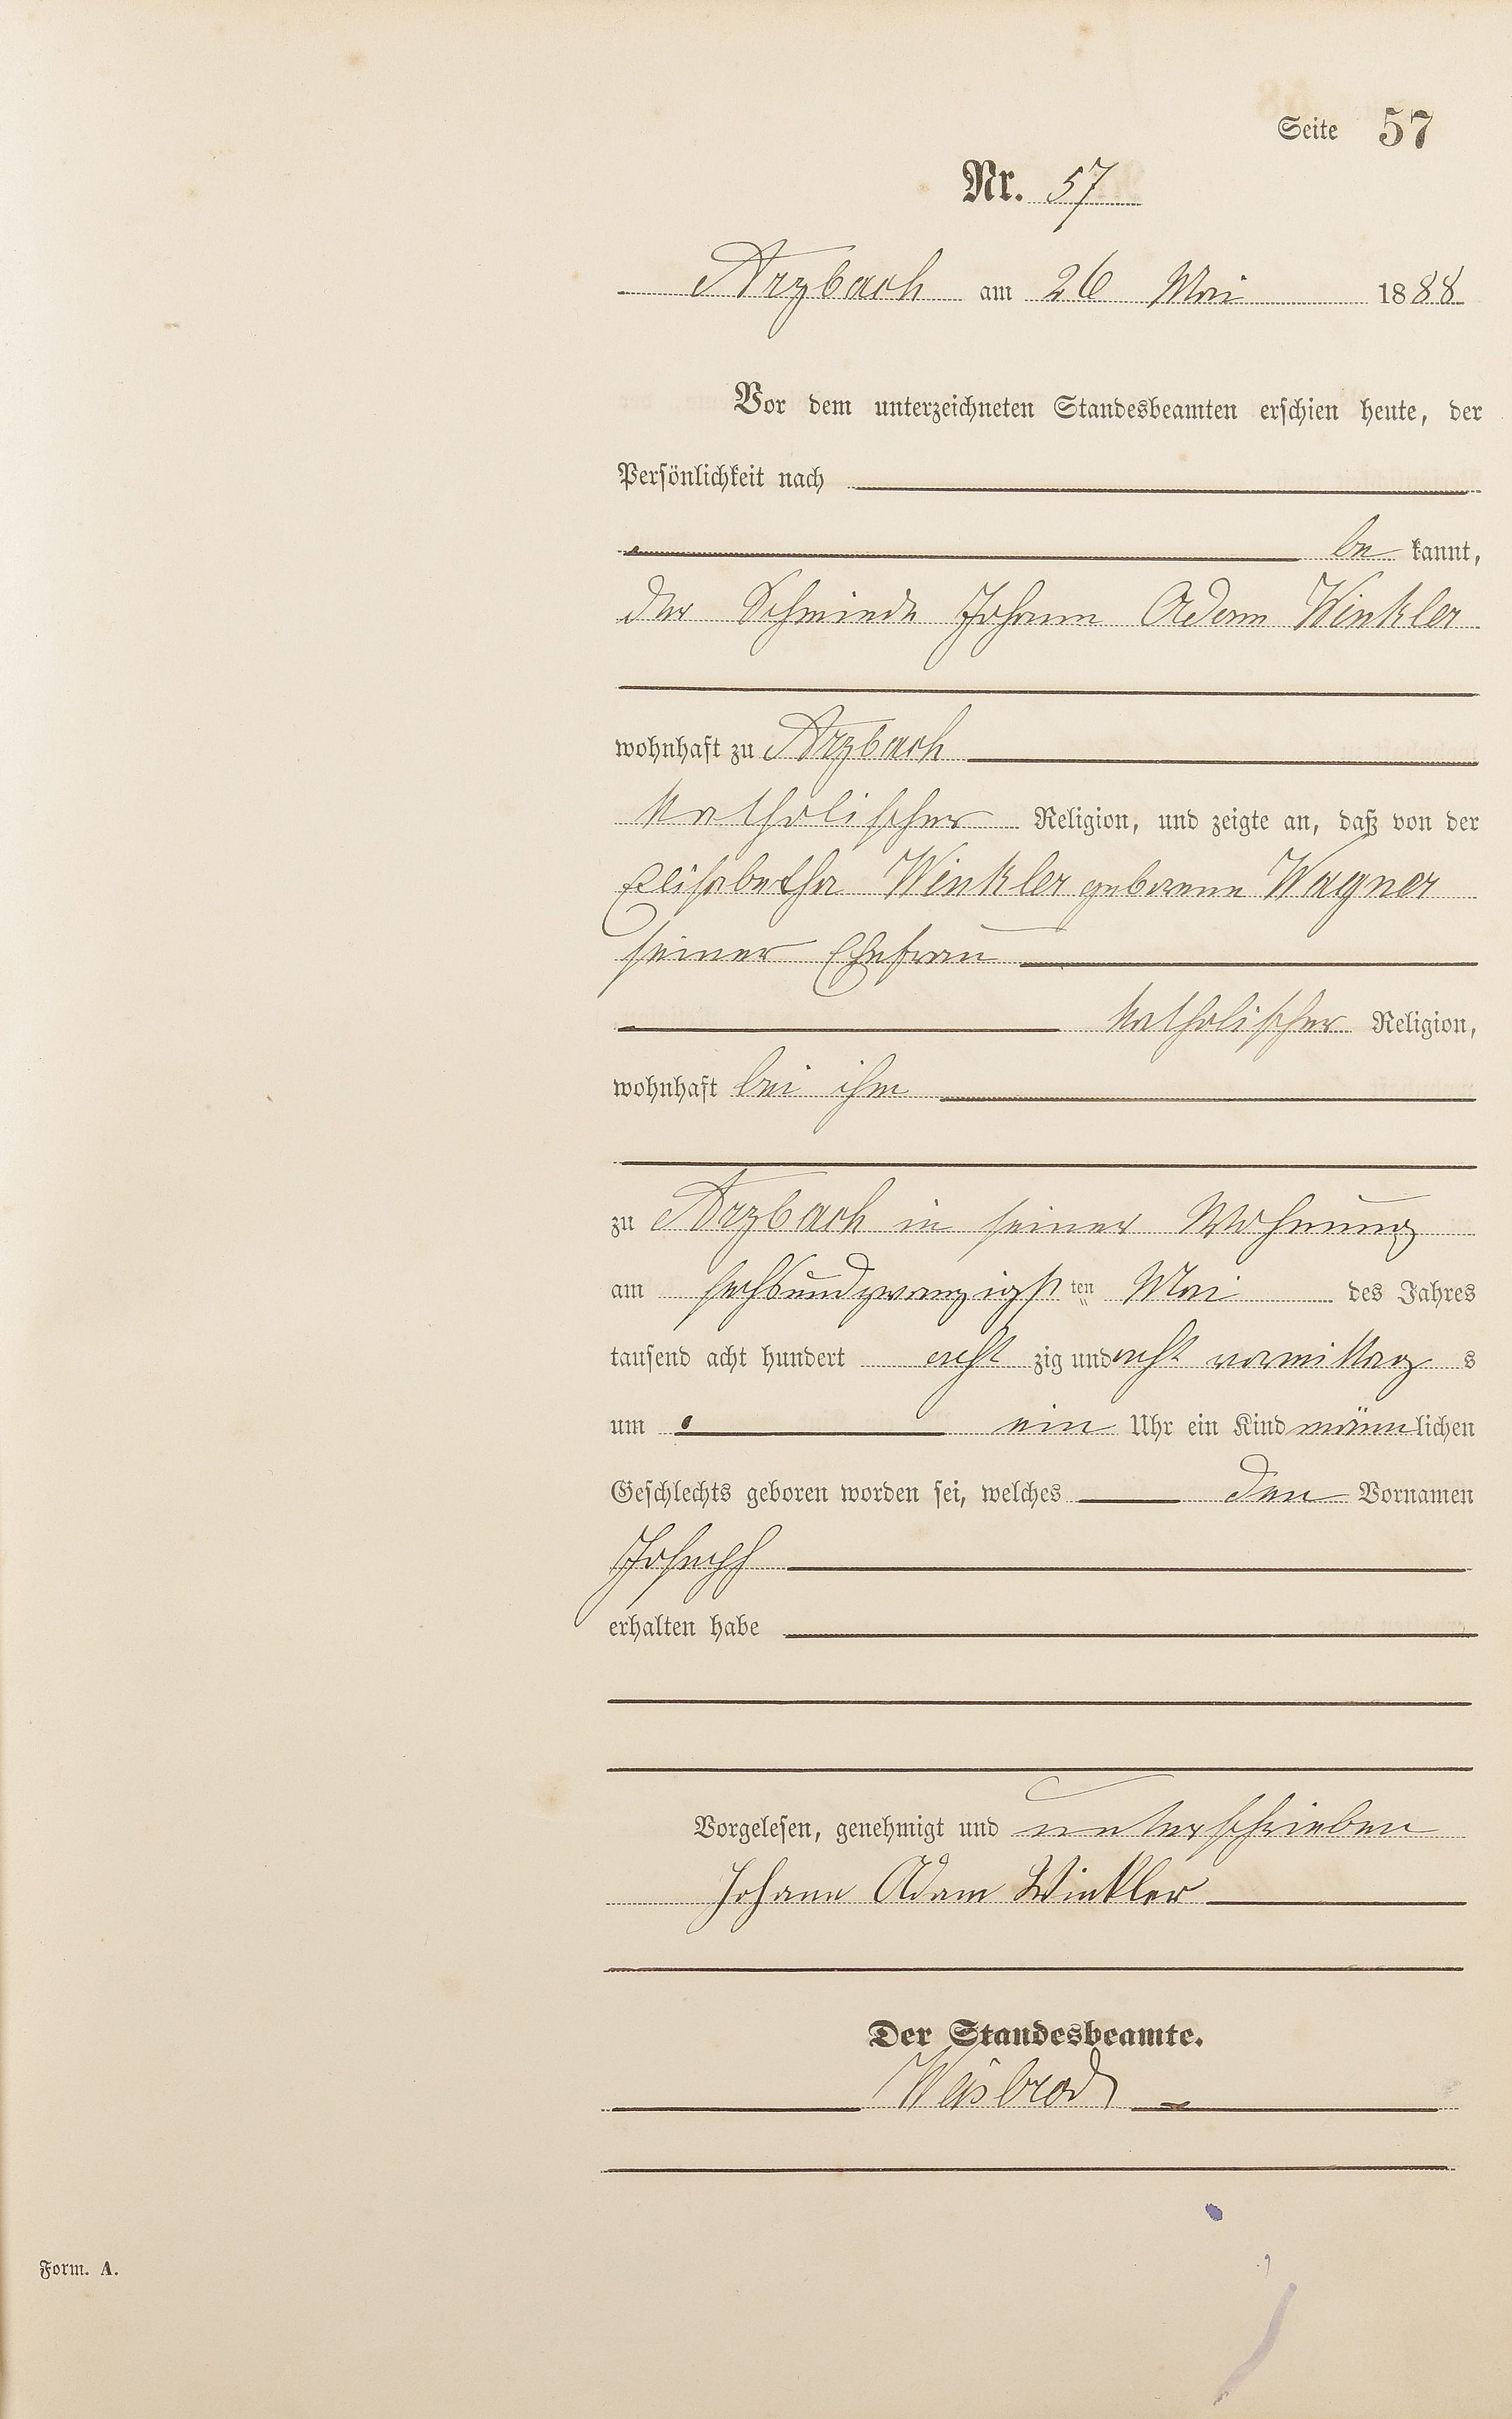 Seite 57
Nr. 57
Arzbach am 26 Mai 1888
Vor dem unterzeichneten Standesbeamten erschien heute, der
Persönlichkeit nach
be kannt,
der Schmiede Johann Adam Winkler
wohnhaft zu Arzbach
katholischer Religion, und zeigte an, daß von der
Elisabetha Winkler geborene Wagner
seiner Ehefrau
katholischer Religion,
wohnhaft bei ihm
zu Arzbach in seiner Wohnung
am sechsundzwanzigsten Mai des Jahres
tausend acht hundert acht zig und acht vormittag s
um ein Uhr ein Kind männlichen
Geschlechts geboren worden sei, welches den Vornamen
Joseph
erhalten habe
Vorgelesen, genehmigt und unterschrieben
Johann Adam Winkler
Der Standesbeamte.
Weisbrod
Form. A.